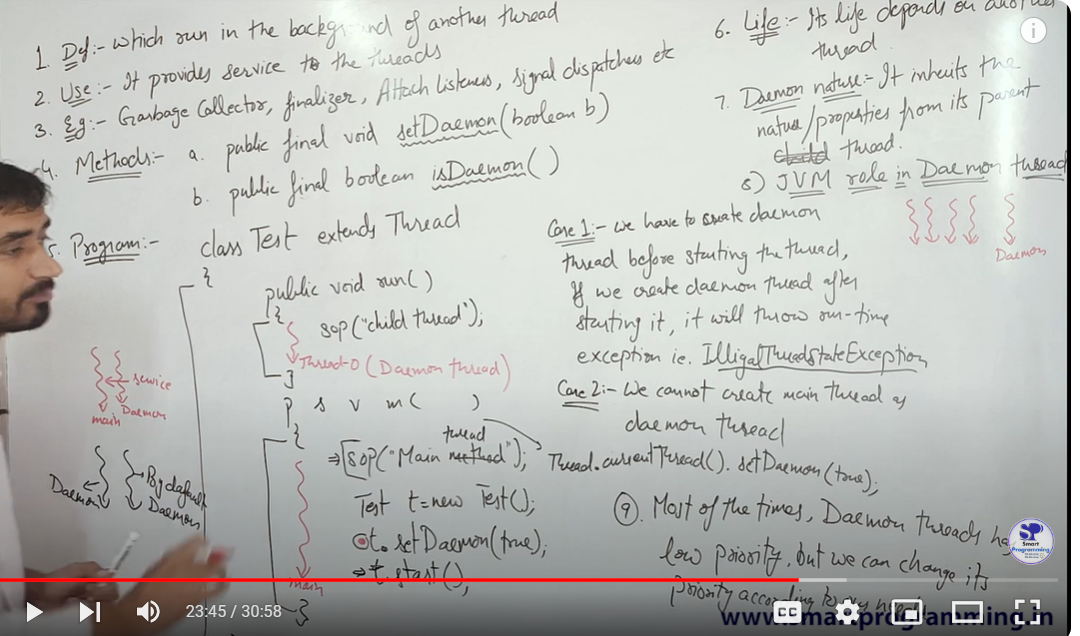 1. Def:- which run in the background of another thread
2. Use:- It provides service to the threads
3. Eg:- Garbage Collector, finalizer, Attach Listeners, signal dispatchers etc
4. Methods:- a. public final void setDaemon(boolean b)
b. public final boolean isDaemon( )
5. Program:-
class Test extends Thread
{
public void run( )
{
sop("child thread");
Thread-0 (Daemon thread)
}
p s v m( )
{
thread
sop("Main method");
Test t=new Test();
t. setDaemon(true);
t. start();
main
}
service
main
Daemon
Daemon
By default
Daemon
6. Life:- Its life depends on another
thread.
7. Daemon nature:- It inherits the
nature/properties from its parent
child thread.
8) JVM role in Daemon thread
Daemon
Case 1:- we have to create daemon
thread before starting the thread,
If we create daemon thread after
starting it, it will throw run-time
exception ie. IlligalThreadStateException
Case 2:- We cannot create main thread as
daemon thread
Thread.currentThread(). setDaemon(true);
9. Most of the times, Daemon threads has
low priority, but we can change its
priority according to
www.smartprogramming.in
Smart
Programming
23:45 / 30:58
CC